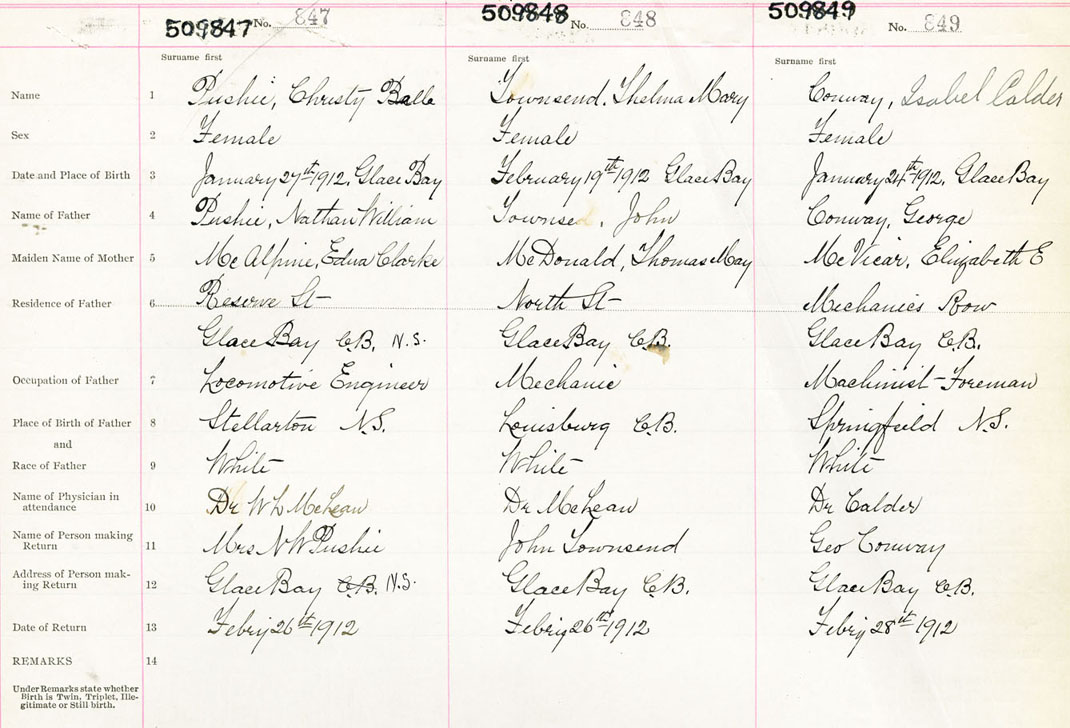 509847 No. 847 509848 No. 848 509849 No. 849
Surname first Surname first Surname first
Name 1 Pushie, Christy Balle Townsend, Thelma Mary Conway, Isabel Calder
Sex 2 Female Female Female
Date and Place of Birth 3 January 27th 1912, Glace Bay February 19th 1912 Glace Bay January 24th 1912, Glace Bay
Name of Father 4 Pushie, Nathan William Townsend, John Conway, George
Maiden Name of Mother 5 McAlpine, Edna Clarke McDonald, Thomas May McVicar, Elizabeth E
Residence of Father 6 Reserve St North St Mechanics Row
Glace Bay C.B. N.S. Glace Bay C.B. Glace Bay C.B.
Occupation of Father 7 Locomotive Engineer Mechanic Machinist-Foreman
Place of Birth of Father 8 Stellarton N.S. Louisburg C.B. Springfeild N.S.
and
Race of Father 9 White White White
Name of Physician in
attendance 10 Dr W L McLean Dr McLean Dr Calder
Name of Person making
Return 11 Mrs N W Pushie John Townsend Geo Conway
Address of Person mak-
ing Return 12 Glace Bay C.B. N.S. Glace Bay C.B. Glace Bay C.B.
Date of Return 13 Febry 26th 1912 Febry 26th 1912 Febry 28th 1912
REMARKS 14
Under Remarks state whether
Birth is Twin, Triplet, Ille-
gitimate or Still birth.